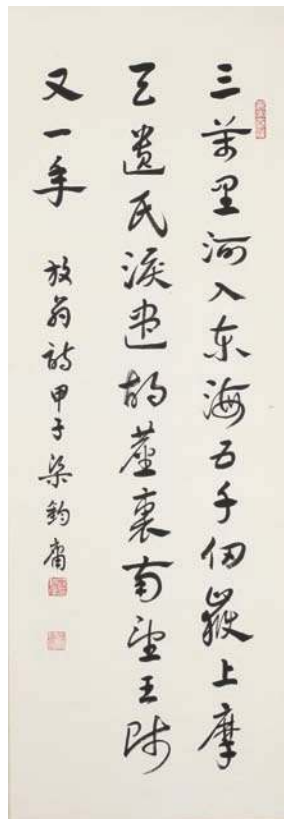 三萬里河入東海五千仞嶽上摩
天遺民淚盡胡塵裏南望王師
又一年 放翁詩甲子梁鈞庸